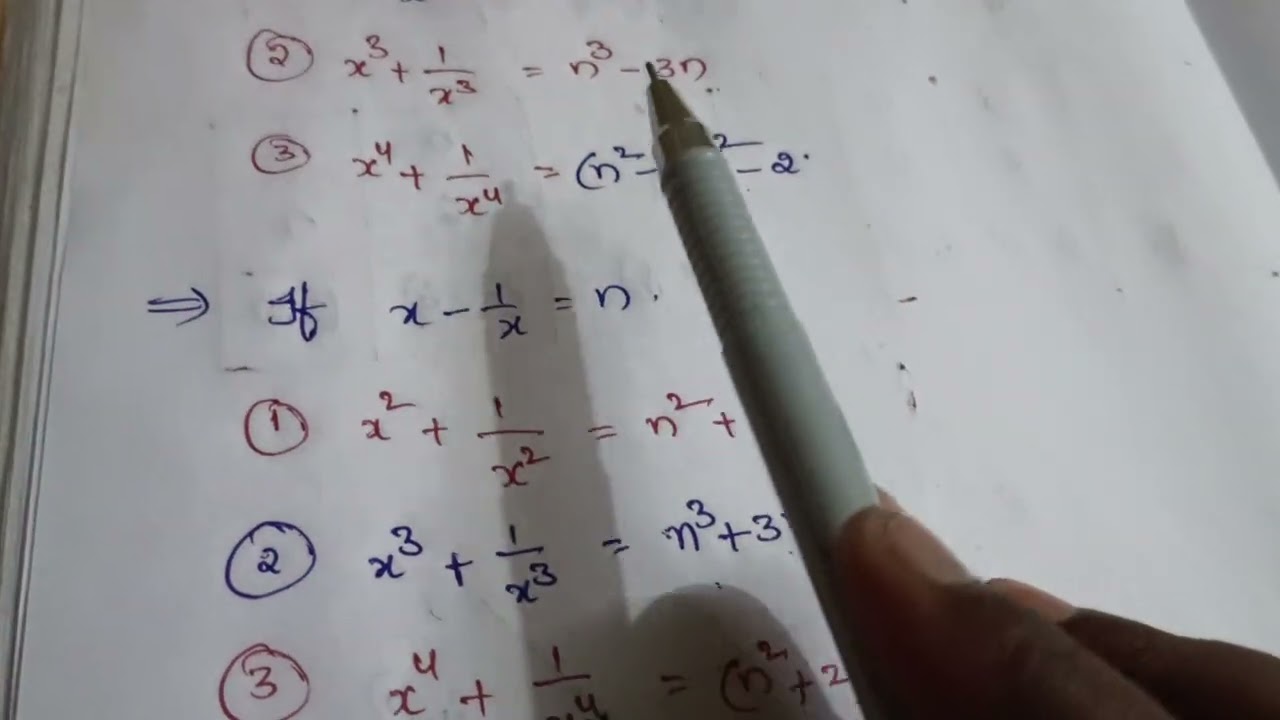 ② x³ + 1/x³ = n³ - 3n
③ x⁴ + 1/x⁴ = (n² - ² - 2.
⇒ If x - 1/x = n.
① x² + 1/x² = n² +
② x³ + 1/x³ = n³ + 3
③ x⁴ + 1/x⁴ = (n² + 2